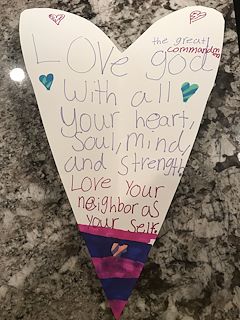 the great
commandm
Love god
With all
Your heart,
Soul, mind,
and strength
Love Your
neighbor as
Your self.